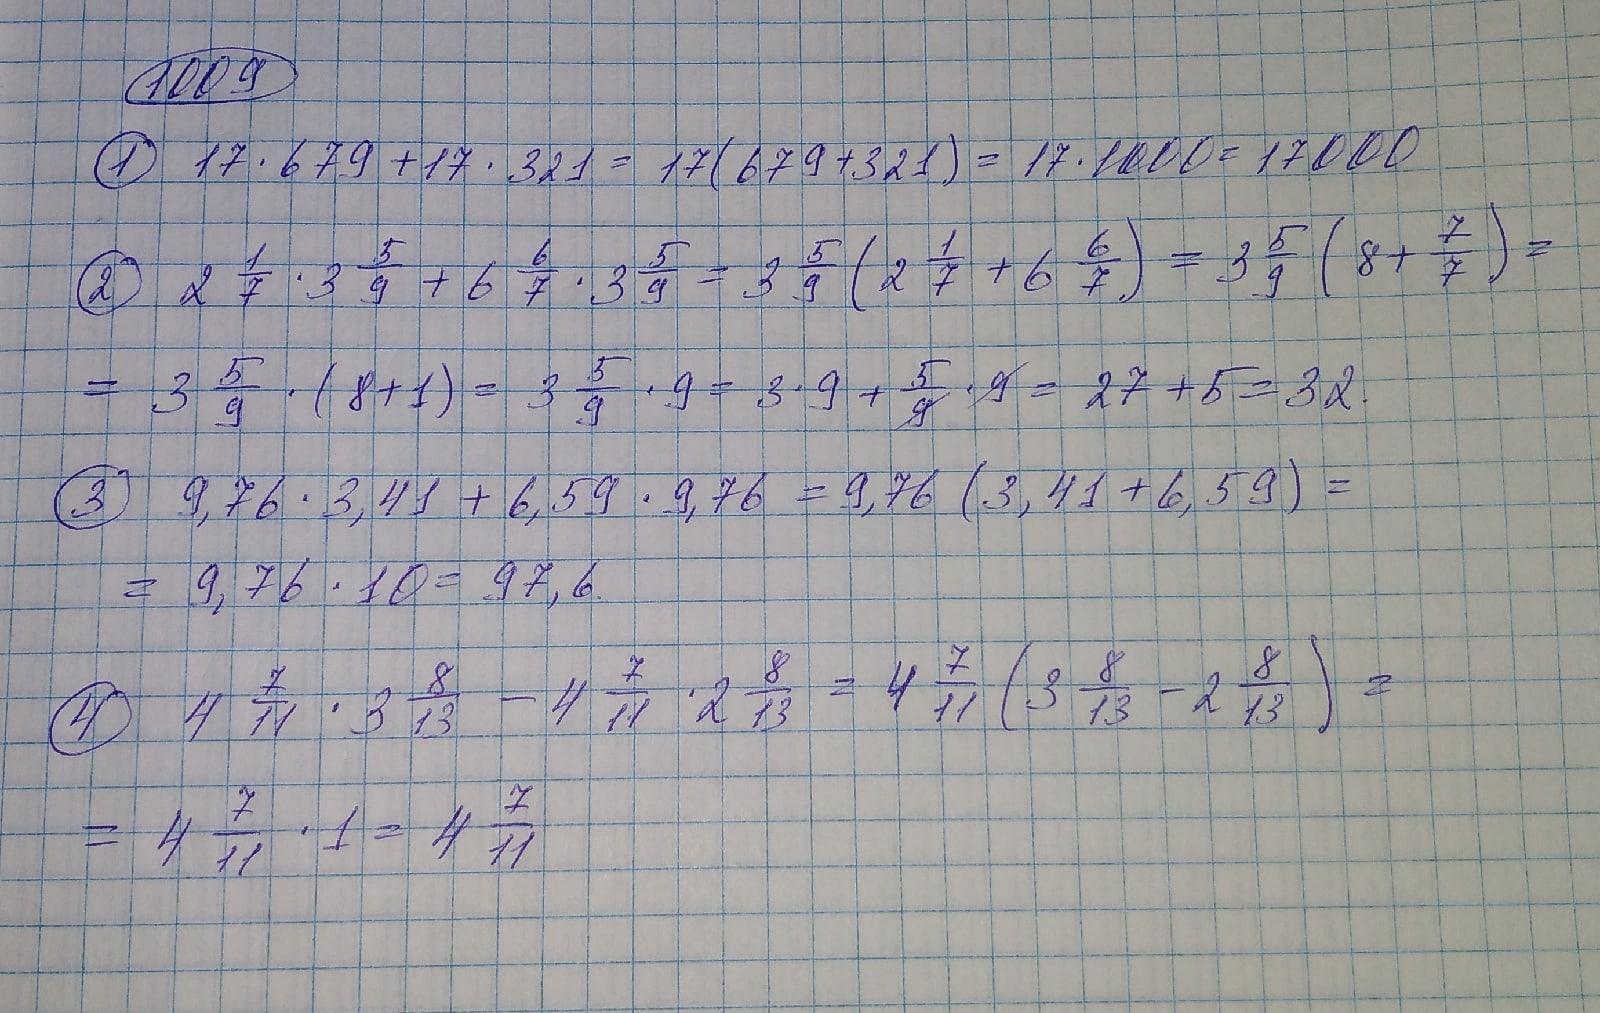 1009
① 17·679+17·321=17(679+321)=17·1000=17000
② 2 1/7·3 5/9+6 6/7·3 5/9=3 5/9(2 1/7+6 6/7)=3 5/9(8+7/7)=
=3 5/9·(8+1)=3 5/9·9=3·9+5/9·9=27+5=32.
③ 9,76·3,41+6,59·9,76=9,76(3,41+6,59)=
=9,76·10=97,6.
④ 4 7/11·3 8/13-4 7/11·2 8/13=4 7/11(3 8/13-2 8/13)=
=4 7/11·1=4 7/11